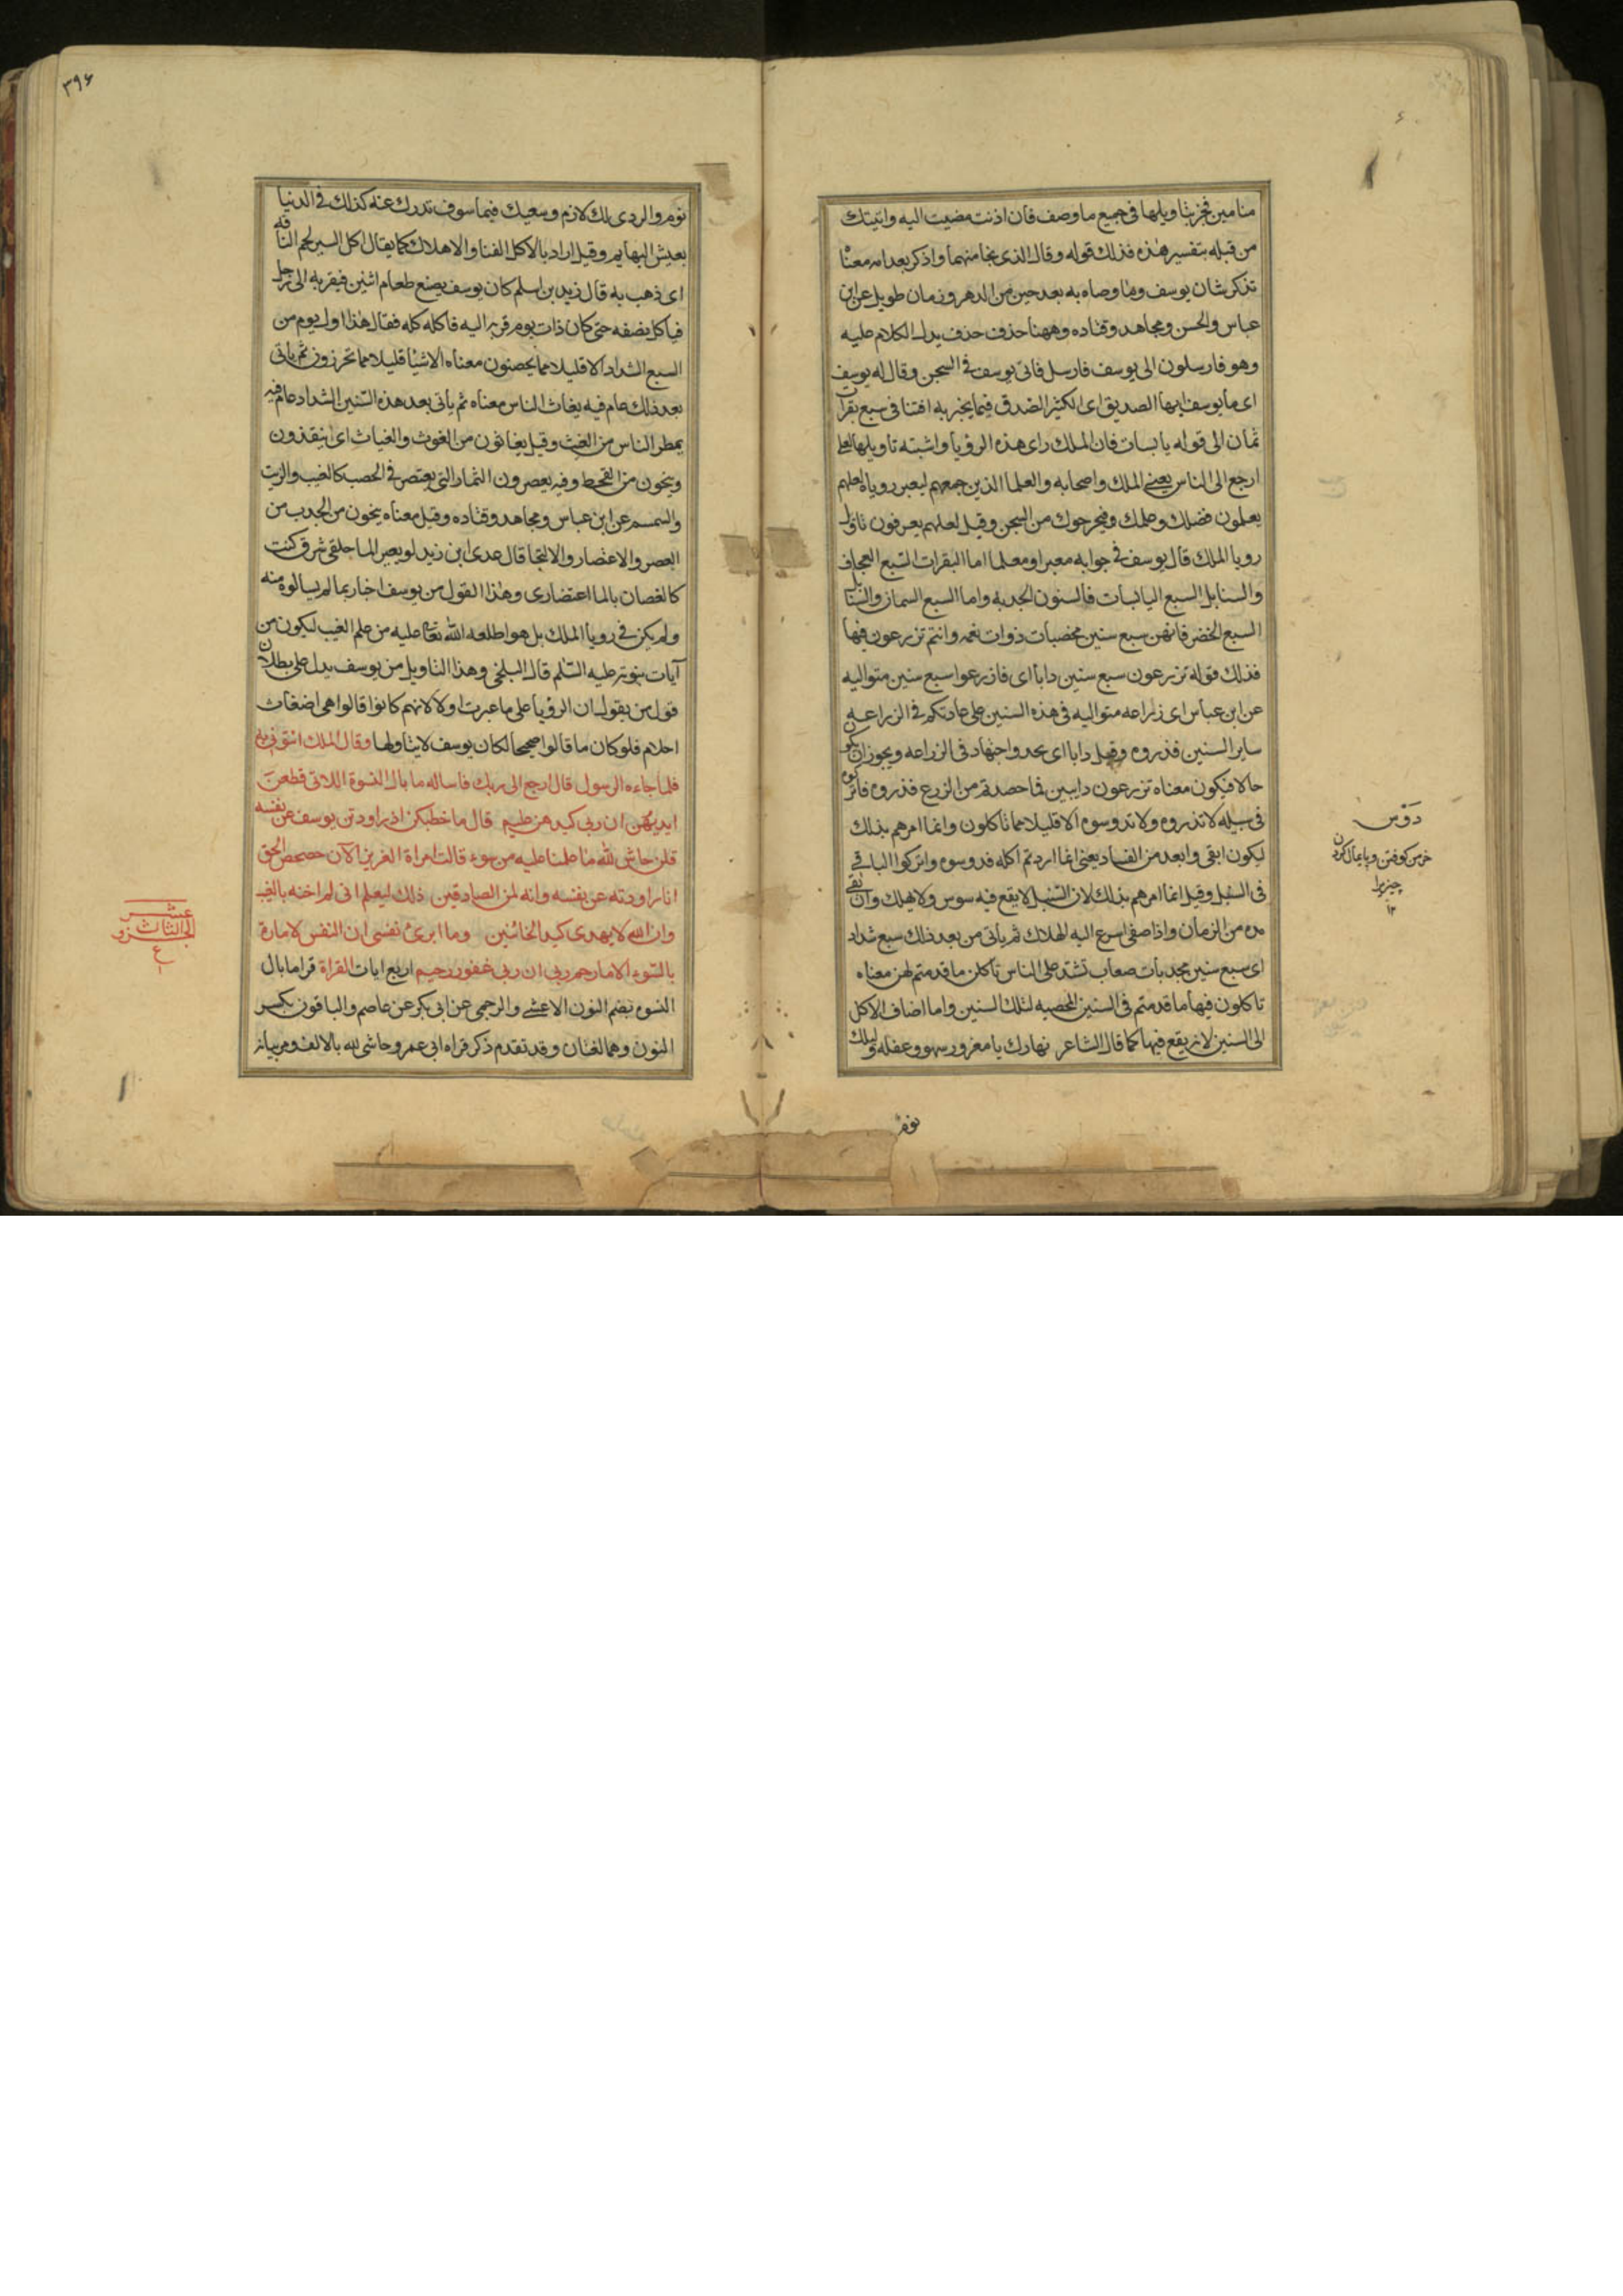 منامين فخبر بتاويلها فى جميع ما وصف فان اذنت مضيت اليه واتيتك
من قبله بتفسير هذه فذلك قوله وقال الذى نجا منهما واذكر بعد امه معناه
تذكر شان يوسف وما وصاه به بعد حين من الدهر وزمان طويل عن ابن
عباس والحسن ومجاهد وقتاده وههنا حذف حذف يدل الكلام عليه
وهو فارسلون الى يوسف فارسل فاتى يوسف فى السجن وقال له يوسف
اى يا يوسف ايها الصديق اى الكثير الصدق فيما يخبر به افتنا فى سبع بقرات
ثمان الى قوله يابسات فان الملك راى هذه الرؤيا واشتبه تاويلها لعلى
ارجع الى الناس يعنى الملك واصحابه والعلما الذين جمعهم لتعبير روياه لعلهم
يعلمون فضلك وعلمك وفيخرجوك من السجن وقيل لعلهم يعرفون تاويل
رويا الملك قال يوسف فى جوابه معبرا ومعلما اما البقرات السبع العجاف
والسنابل السبع اليابسات فالسنون الجدبه واما السبع السمان والسنابل
السبع الخضر فانهن سبع سنين مخصبات ذوات نعمه وانتم تزرعون فيها
فذلك قوله تزرعون سبع سنين دابا اى فازرعوا سبع سنين متواليه
عن ابن عباس اى زراعه متواليه فى هذه السنين على عادتكم فى الزراعه
ساير السنين فذروه وقيل دابا اى بجد واجتهاد فى الزراعه ويجوز ان يكون
حالا فيكون معناه تزرعون دايبين فما حصدتم من الزرع فذروه فاتركوه
فى سنبله لا تذروه ولا تدوسوه الا قليلا مما تاكلون وانما امرهم بذلك
ليكون ابقى وابعد من الفساد يعنى انما اردتم اكله فدوسوه واتركوا الباقى
فى السنبل وقيل انما امرهم بذلك لان السنبل لا يقع فيه سوس ولا يهلك وان بقى
مده من الزمان واذا صفى اسرع اليه الهلاك ثم ياتى من بعد ذلك سبع شداد
اى سبع سنين مجدبات صعاب تشتد على الناس تاكلن ما قدمتم لهن معناه
تاكلون فيها ما قدمتم فى السنين المخصبه لتلك السنين واما اضاف الاكل
الى السنين لانه يقع فيها كما قال الشاعر نهارك يا مغرور سهو وغفله وليلك
نوم
دَوْس
خرمن كوفتن وپايمال كردن
چيزيرا
١٢
٣٩۶
نوم والردى لك لازم وسعيك فيما سوف تدرك عنه كذلك فى الدنيا
يعيش البهايم وقيل اراد بالاكل الفنا والاهلاك كما يقال اكل السير لحم الناقه
اى ذهب به قال زيد بن اسلم كان يوسف يصنع طعام اثنين فيقربه الى رجل
فياكل نصفه حتى كان ذات يوم قربه اليه فاكله كله فقال هذا اول يوم من
السبع الشداد الا قليلا مما تحصنون معناه الا شيئا قليلا مما تحرزون ثم ياتى
بعد ذلك عام فيه يغاث الناس معناه ثم ياتى بعد هذه السنين الشداد عام فيه
يمطر الناس من الغيث وقيل يغاثون من الغوث والغياث اى ينقذون
وينجون من القحط وفيه يعصرون الثمار التى يعتصر فى الخصب كالعنب والزيت
والسمسم عن ابن عباس ومجاهد وقتاده وقيل معناه ينجون من الجدب من
العصر والاعتصار والالتجا قال عدى ابن زيد لو بغير الما حلقى شرق كنت
كالغصان بالما اعتصارى وهذا القول من يوسف اخبار بما لم يسالوه منه
ولم يكن فى رويا الملك بل هو اطلعه الله تعالى عليه من علم الغيب ليكون من
آيات نبوته عليه السلم قال البلخى وهذا التاويل من يوسف يدل على بطلان
قول من يقول ان الرؤيا على ما عبرت اولا لانهم كانوا قالوا هى اضغاث
احلام فلو كان ما قالوا صحيحا لكان يوسف لا يتاولها وقال الملك ائتونى به
فلما جاءه الرسول قال ارجع الى ربك فاساله ما بال النسوة اللاتى قطعن
ايديهن ان ربى بكيدهن عليم قال ما خطبكن اذ راودتن يوسف عن نفسه
قلن حاش لله ما علمنا عليه من سوء قالت امراة العزيز الآن حصحص الحق
انا راودته عن نفسه وانه لمن الصادقين ذلك ليعلم انى لم اخنه بالغيب
وان الله لا يهدى كيد الخائنين وما ابرئ نفسى ان النفس لامارة
بالسوء الا ما رحم ربى ان ربى غفور رحيم اربع ايات القراة قرا ما بال
النسوه بضم النون الاعشى والبرجمى عن ابى بكر عن عاصم والباقون بكسر
النون وهما لغتان وقد تقدم ذكر قراه ابى عمرو حاشى لله بالالف ومر بيانه
الجزو الثالث عشر